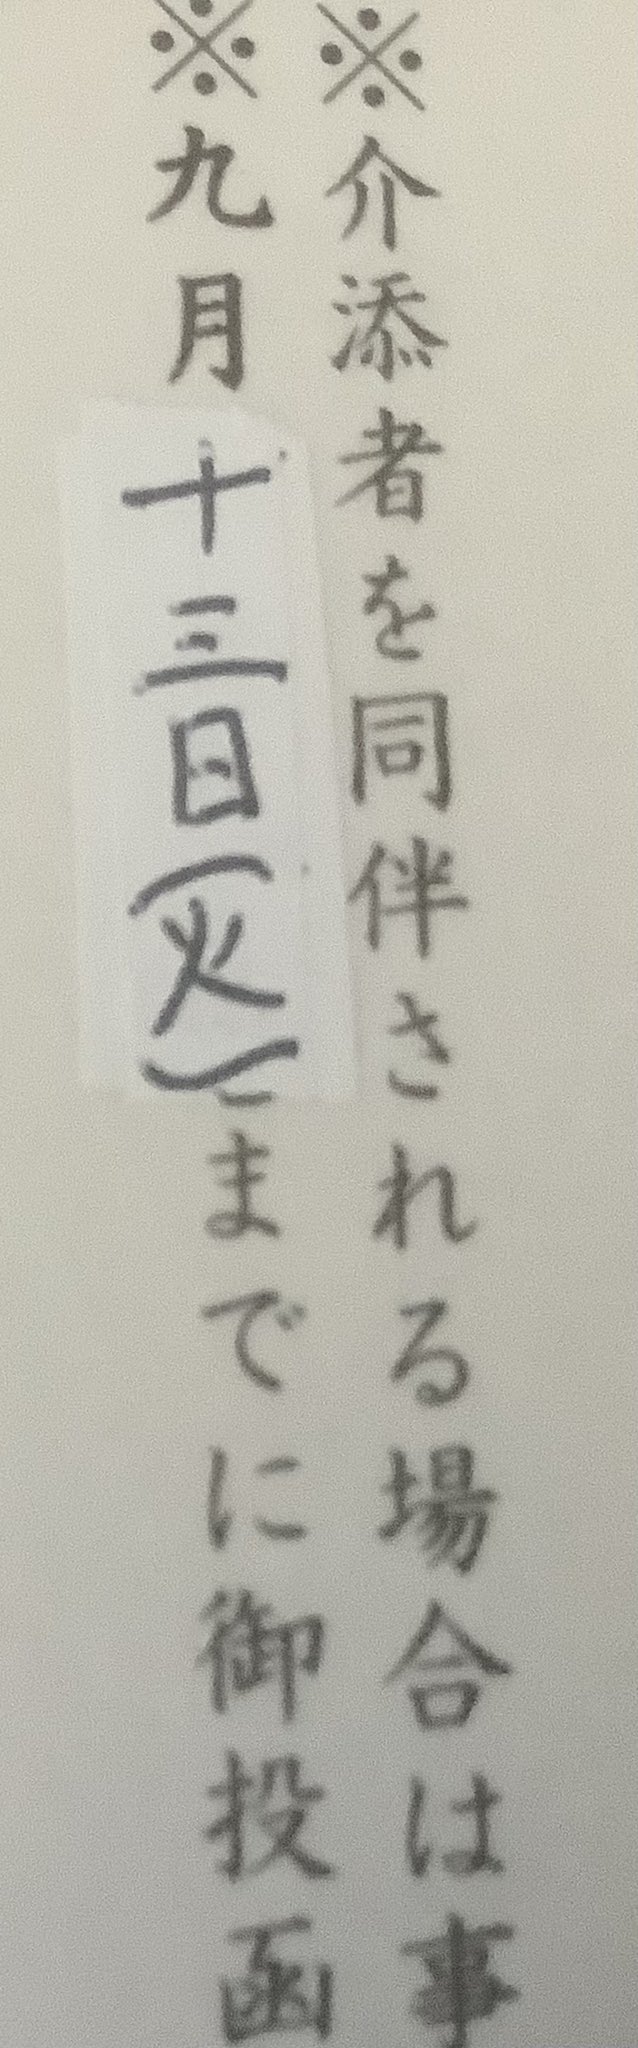 ※介添者を同伴される場合は事
※九月十三日(火)までに御投函